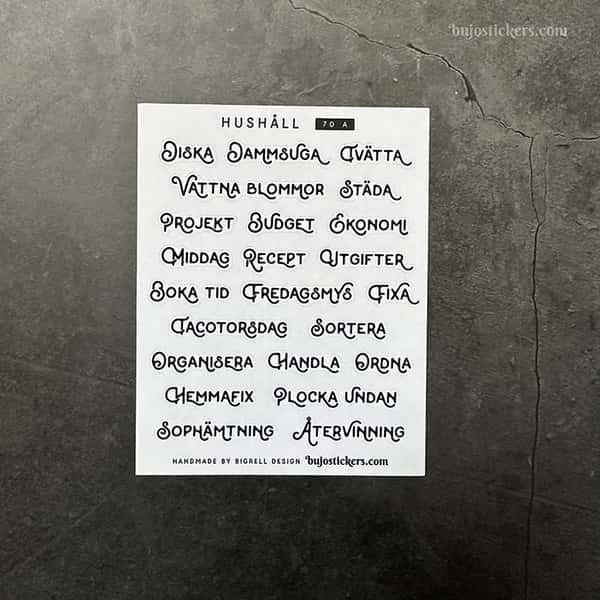 bujostickers.com
HUSHÅLL 70 A
DISKA DAMMSUGA TVÄTTA
VATTNA BLOMMOR STÄDA
PROJEKT BUDGET EKONOMI
MIDDAG RECEPT UTGIFTER
BOKA TID FREDAGSMYS FIXA
TACOTORSDAG SORTERA
ORGANISERA HANDLA ORDNA
HEMMAFIX PLOCKA UNDAN
SOPHÄMTNING ÅTERVINNING
HANDMADE BY BIGRELL DESIGN bujostickers.com